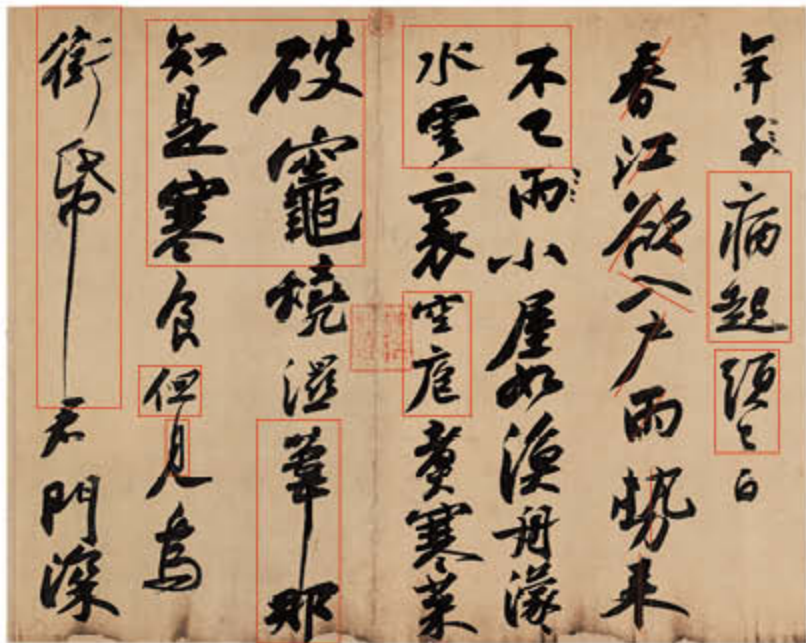 年子病起頭已白
春江欲入户雨勢来
不已雨小屋如漁舟濛〻
水雲裏空庖煮寒菜
破竈燒濕葦那
知是寒食但見烏
銜帋君門深